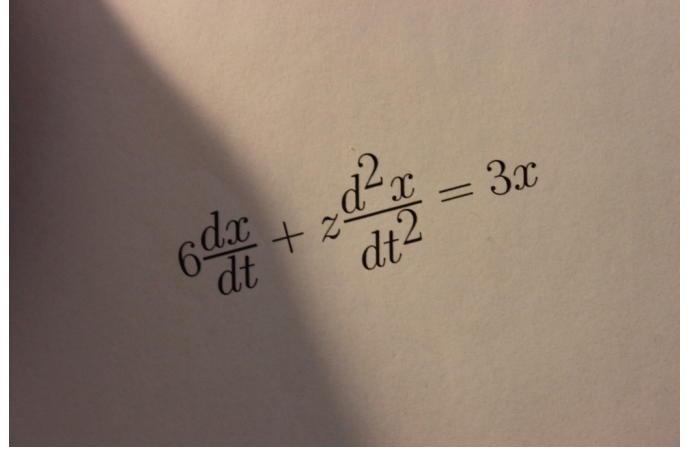 6\frac{dx}{dt} + z\frac{d^2x}{dt^2} = 3x